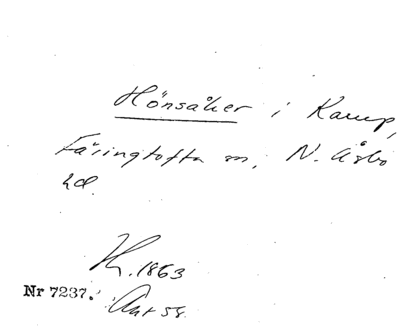 Hönsåker i Karup,
Färingtofta sn, N. Åsbo
hd.
K. 1863
Nr 7237. Akt 58